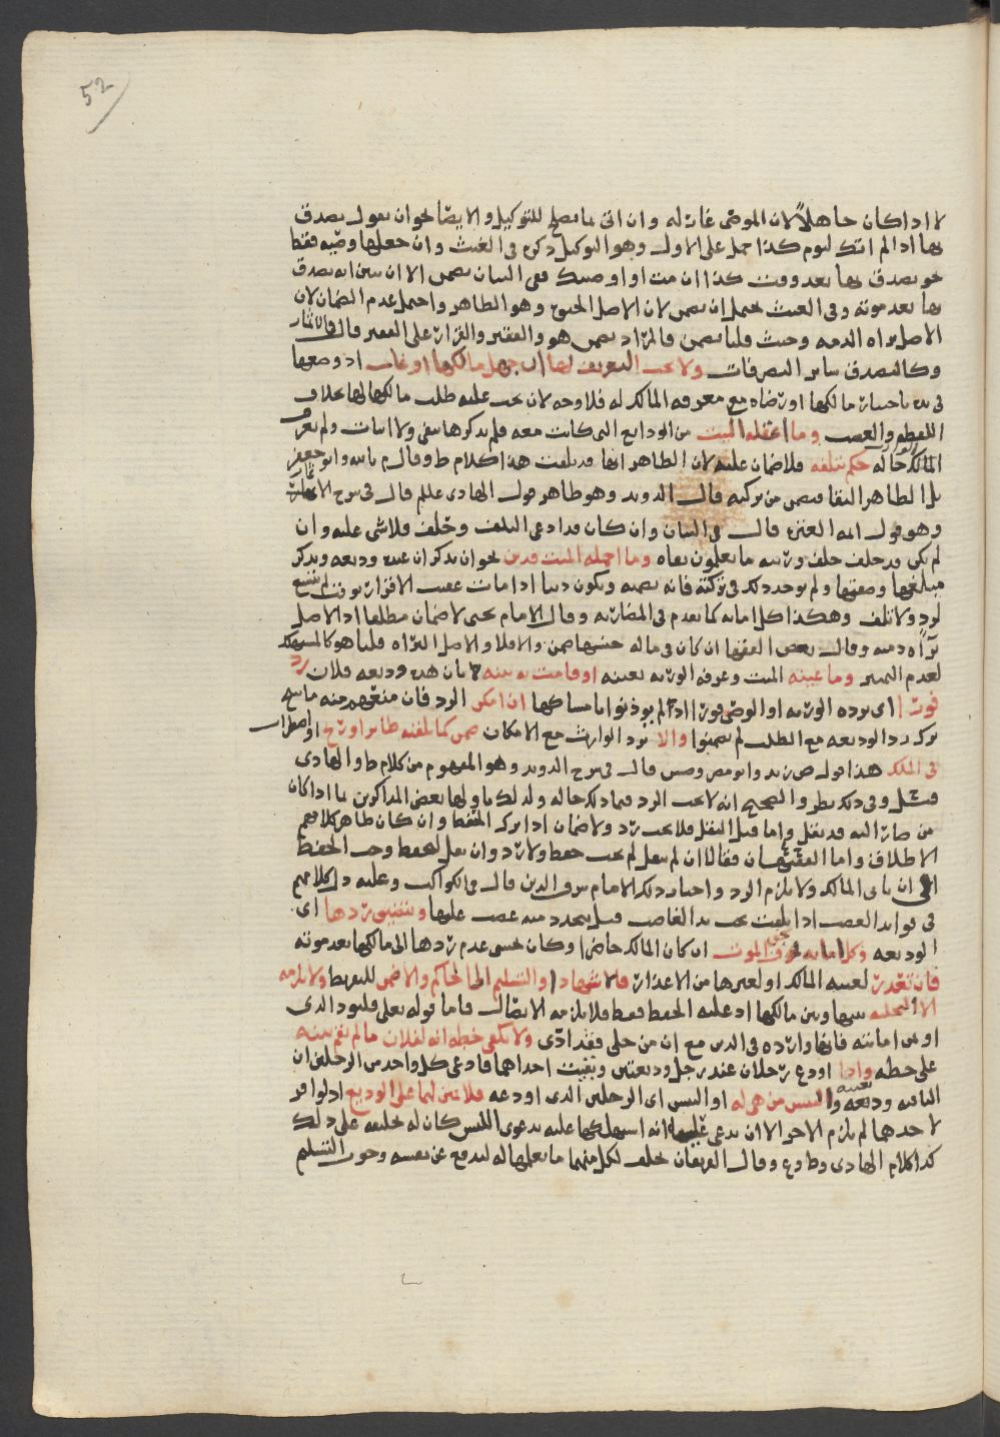 52
لا اذا كان جاهلاً لان الموصي غارّ له وان اتى بما يصلح للتوكيل والايصا نحو ان يقول تصدق
بها اذا لم اتك ليوم كذا حمل على الاول وهو التوكيل ذكره في الغيث وان جعلها وصيه فقط
نحو تصدق بها بعد وقت كذا ان مت او اوصيتك ففي البيان يضمن الا ان يبين انه تصدق
بها بعد موته وفي الغيث يحتمل ان يضمن لان الاصل الحيوة وهو الظاهر واحتمل عدم الضمان لان
الاصل براه الذمه وحيث قلنا يضمن فالمراد يضمن هو والفقير والقرار على الفقير قال في الاثمار
وكالتصدق سائر التصرفات ولا يجب التعريف بها ان جهل مالكها او غاب اذ وضعها
في يده باختيار مالكها او رضاه مع معرفه المالك له فلا وجه لان يجب عليه طلب مالكها لها بخلاف
اللقطه والغصب وما اغفله الميت من الودايع التي كانت معه فلم يذكرها بنفي ولا اثبات ولم يعرف
المالك حاله حكم بتلفه فلا ضمان عليه لان الظاهر انها قد تلفت هذا كلام ط وقال م بالله وابو جعفر
بل الظاهر البقا فيضمن من تركته قال الدويد وهو ظاهر قول الهادي عليلم قال في شرح الاثمار
وهو قول ايمه العتره قال في البيان وان كان قد ادعى التلف وحلف فلا شي عليه وان
لم يكن قد حلف حلف ورثته ما يعلمون بقاه وما اجمله الميت فدين نحو ان يذكر ان عنده وديعه ويذكر
مبلغها وصفتها ولم يوجد ذلك في تركته فانه يضمنه ويكون دينا اذا مات عقيب الاقرار بوقت لم يتسع
لرد ولا تلف وهكذا كل امانه كما تقدم في المضاربه وقال الامام يحيى لا ضمان مطلقا اذ الاصل
براه ذمته وقال بعض الفقها ان كان في ماله جنسها ضمن والا فلا والاصل البراه قلنا هو كالمستهلك
لعدم التمييز وما عينه الميت وعرفه الورثه بعينه او قامت به بينه بان هذه وديعه فلان رد
فورا اي يرده الورثه او الوصي فورا اذا لم يوذنوا بامساكها ان امكن الرد فان منعهم منه مانع
ترك رد الوديعه مع الطلب لم يضمنوا والا يرد الوارث مع الامكان ضمن كما يلقيه طاير او ريح او اضطراب
في الملك هذا قول ص زيد وابو مضر وص قال في شرح الدويد وهو المفهوم من كلام ط والهادي
قيل وفي ذلك نظر والصحيح انه لا يجب الرد فيما ذلك حاله ولذلك تاولها بعض المذاكرين بما اذا كان
من صار اليه قد ينقل واما قبل النقل فلا يجب رد ولا ضمان اذا ترك الحفظ وان كان ظاهر كلامهم
الاطلاق واما الفقيهان فقالا ان لم ينقل لم يجب حفظ ولا رد وان نقل للحفظ وجب الحفظ
الى ان ياتي المالك ولا يلزم الرد واختار ذلك الامام شرف الدين قال في الكواكب وعليه دل كلامهم
في فوايد الغصب اذا تلفت تحت يد الغاصب قبل يتجدد منه غصب عليها ويتضيق ردها اي
الوديعه وكل امانه عند خوف الموت ان كان المالك حاضرا وكان يخشى عدم ردها الى مالكها بعد موته
فان تعذر لغيبه المالك او لغيرها من الاعذار فالاشهاد او التسليم الى الحاكم والا ضمن للتفريط ولا يلزمه
الا التخليه بينها وبين مالكها اذ عليه الحفظ فقط فلا يلزمه الايصال فاما قوله تعالى فليود الذي
اوتمن امانته فانها وارده في الدين مع ان من خلى فقد ادّى ولا يكفي خطه انه لفلان ما لم تقم بينه
على خطه واذا اودع رجلان عند رجل وديعتين وبقيت احداهما فادعى كل واحد من الرجلين ان
الباقيه وديعته والتبس من هي له او التبس اي الرجلين الذي اودعه فلا يبين لهما على الوديع اذ لو اقر
لاحدهما لم يلزم للاخر الا ان يدعى عليه انه استهلكها عليه بدعوى اللبس كان له تحليفه على ذلك
كذا كلام الهادي وط وع وقال الفريقان يحلف لكل منهما ما يعلمها له ليدفع عن نفسه وجوب التسليم